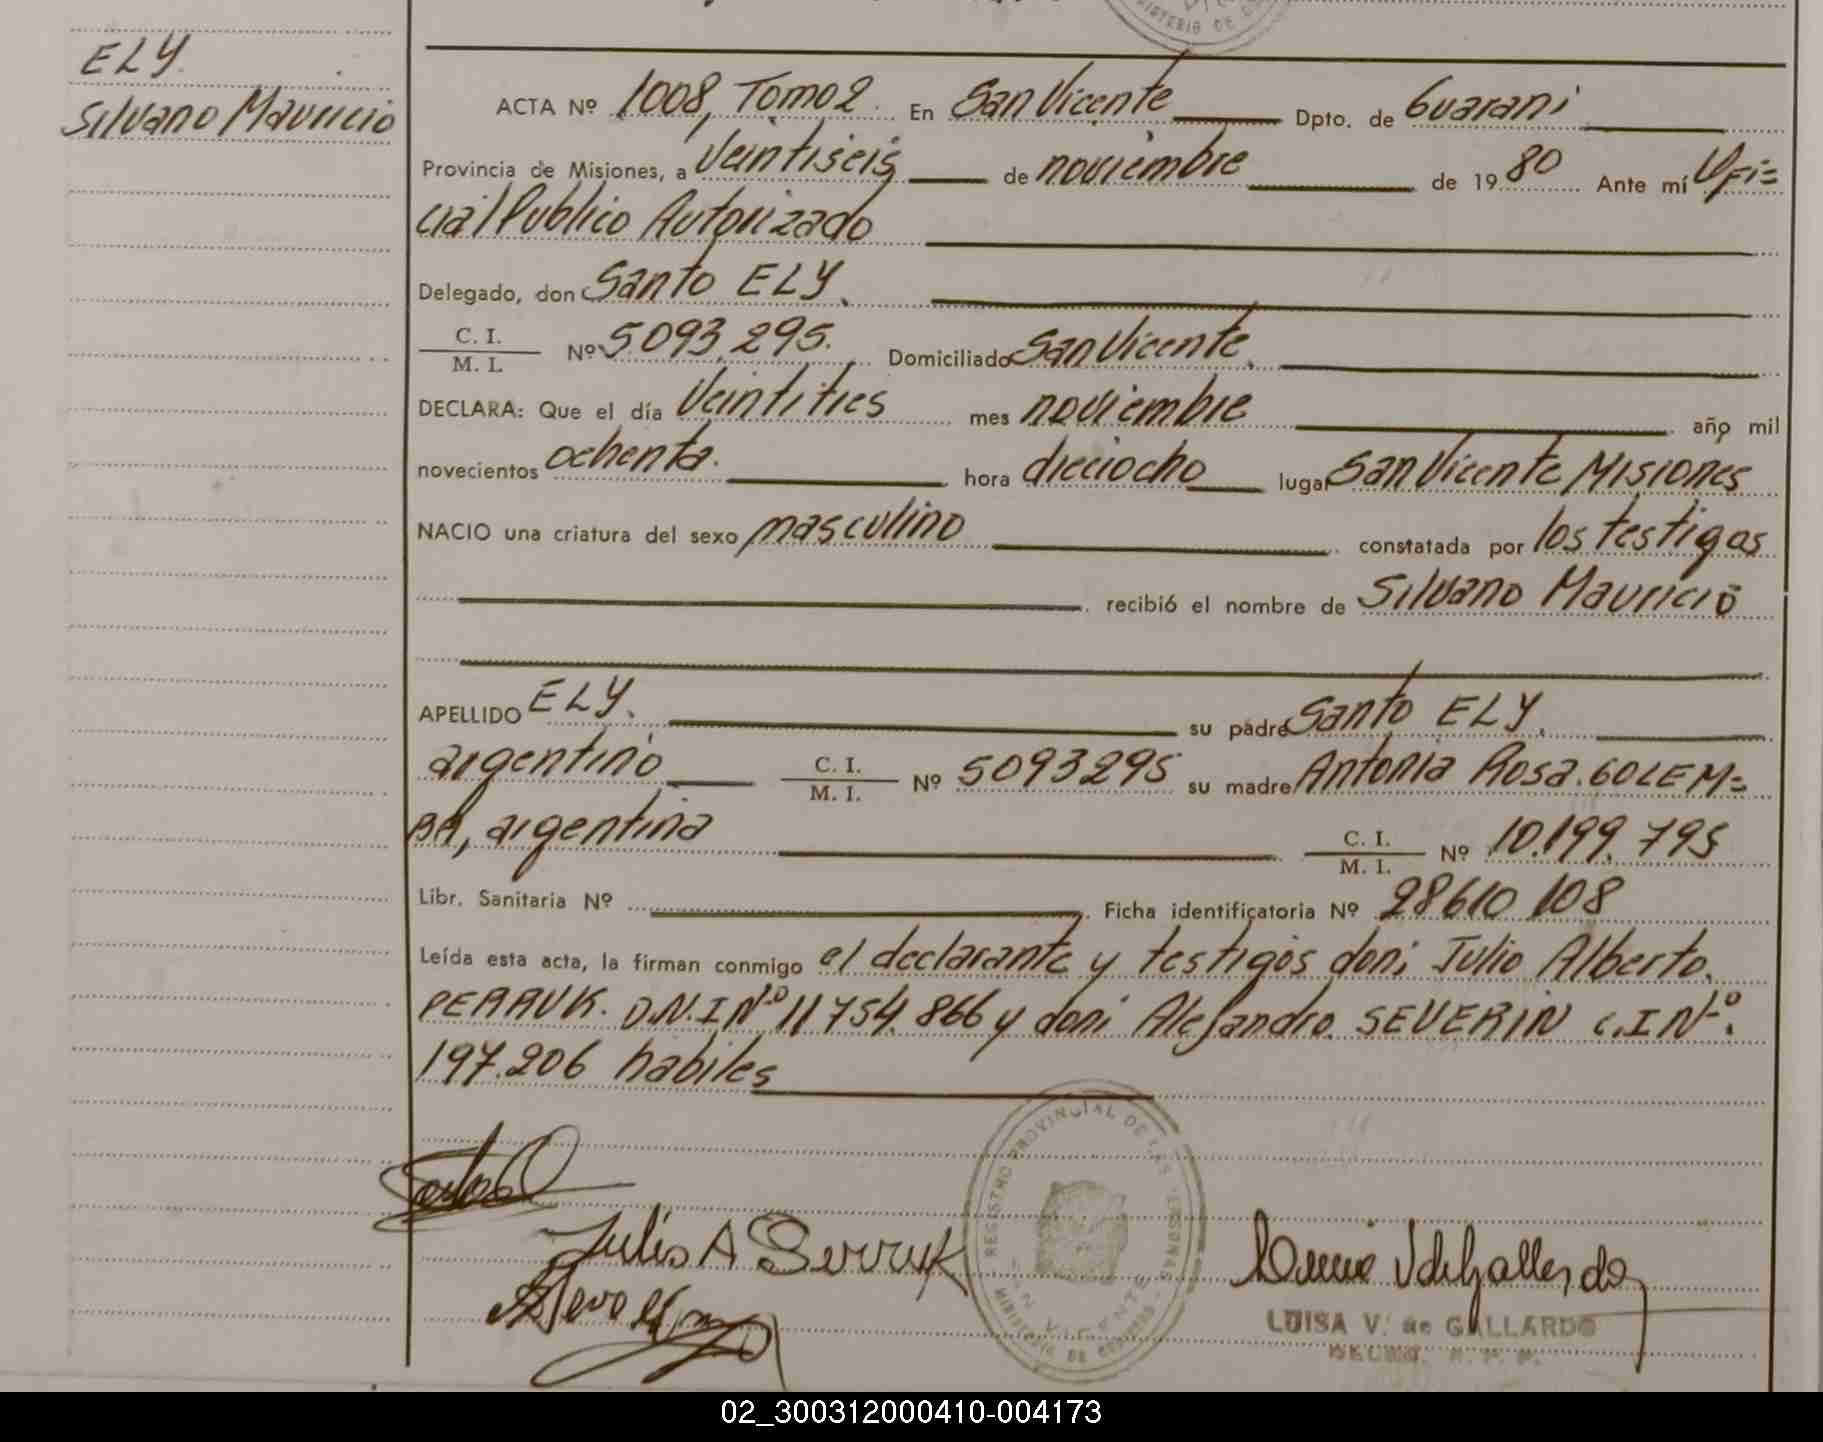 ELY
Silvano Mauricio
ACTA Nº 1008, Tomo 2. En San Vicente Dpto. de Guarani
Provincia de Misiones, a Veintiseis de noviembre de 1980 Ante mí Ofi=
cial Publico Autorizado
Delegado, don Santo ELY.
C. I.
M. I. Nº 5.093.295. Domiciliado San Vicente.
DECLARA: Que el día Veintitres mes noviembre año mil
novecientos ochenta. hora dieciocho lugar San Vicente Misiones
NACIO una criatura del sexo masculino constatada por los testigos
recibió el nombre de Silvano Mauricio
APELLIDO ELY. su padre Santo ELY.
argentino C. I. M. I. Nº 5093295 su madre Antonia Rosa. GOLEM=
BA, argentina C. I. M. I. Nº 10.199.795
Libr. Sanitaria Nº Ficha identificatoria Nº 28610 108
Leída esta acta, la firman conmigo el declarante y testigos don: Julio Alberto.
PERRUK. D.N.I Nº 11754.866 y don: Alejandro. SEVERIN C.I Nº.
197.206 habiles
Julio A Perruk
REGISTRO PROVINCIAL DE LAS PERSONAS
SAN VICENTE
MINISTERIO DE GOBIERNO
LUISA V. de GALLARDO
02_300312000410-004173